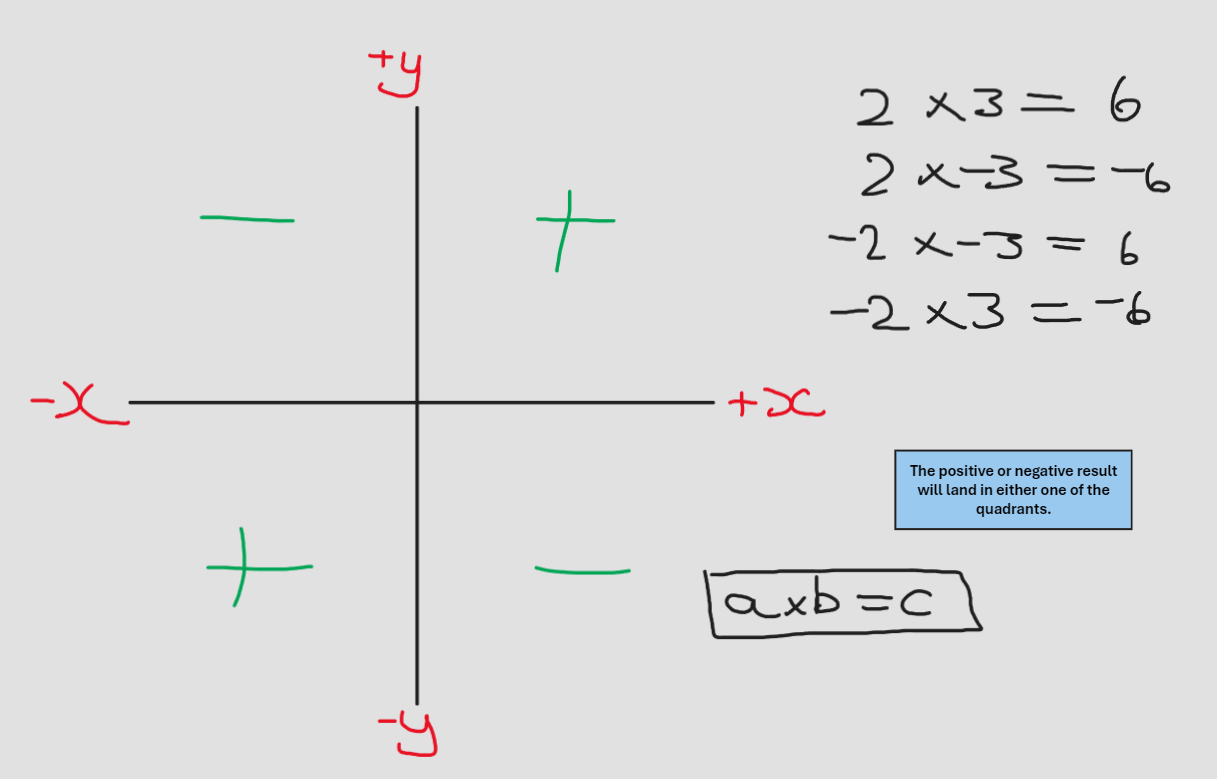 +y
2 × 3 = 6
2 × -3 = -6
- +
-2 × -3 = 6
-2 × 3 = -6
-x +x
The positive or negative result
will land in either one of the
quadrants.
+ -
a×b = c
-y